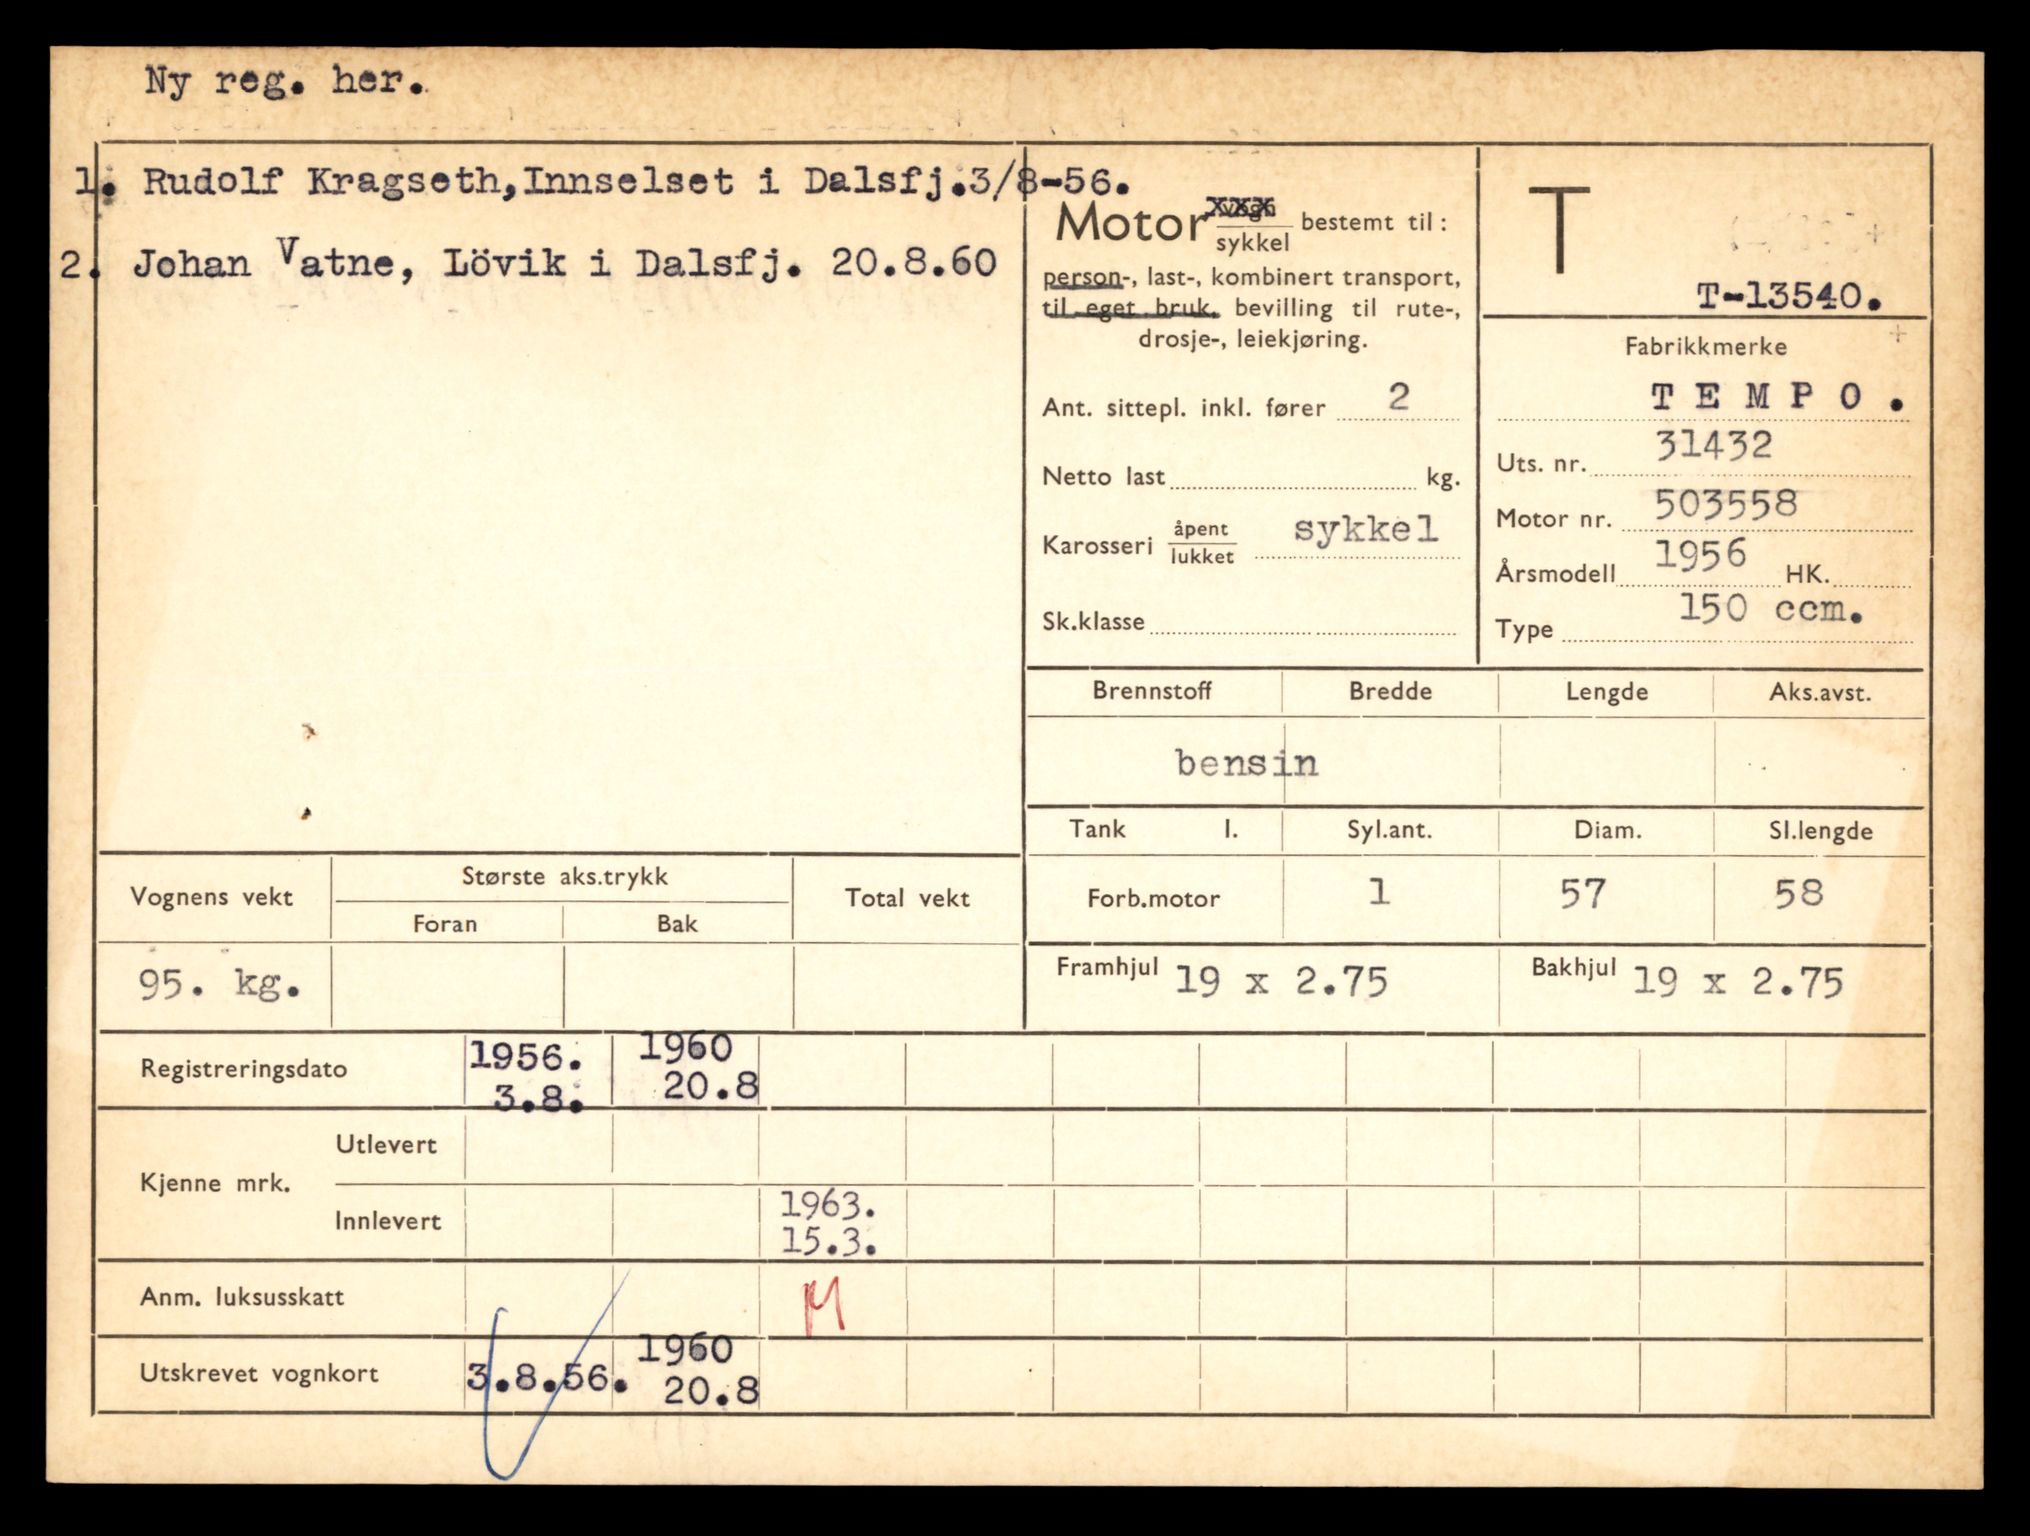 Ny reg. her.
1. Rudolf Kragseth, Innselset i Dalsfj. 3/8-56.
2. Johan Vatne, Lövik i Dalsfj. 20.8.60
Motor sykkel bestemt til:
person-, last-, kombinert transport,
til eget bruk, bevilling til rute-,
drosje-, leiekjøring.
Ant. sittepl. inkl. fører 2
Netto last kg.
Karosseri åpent/lukket sykkel
Sk.klasse
T
T-13540.
Fabrikkmerke
TEMPO.
Uts. nr. 31432
Motor nr. 503558
Årsmodell 1956 HK.
Type 150 ccm.
Brennstoff Bredde Lengde Aks.avst.
bensin
Tank l. Syl.ant. Diam. Sl.lengde
Forb.motor 1 57 58
Framhjul 19 x 2.75 Bakhjul 19 x 2.75
Vognens vekt Største aks.trykk Total vekt
Foran Bak
95. kg.
Registreringsdato 1956. 3.8. 1960 20.8
Kjenne mrk. Utlevert
Innlevert 1963. 15.3.
Anm. luksusskatt M
Utskrevet vognkort 3.8.56. 1960 20.8